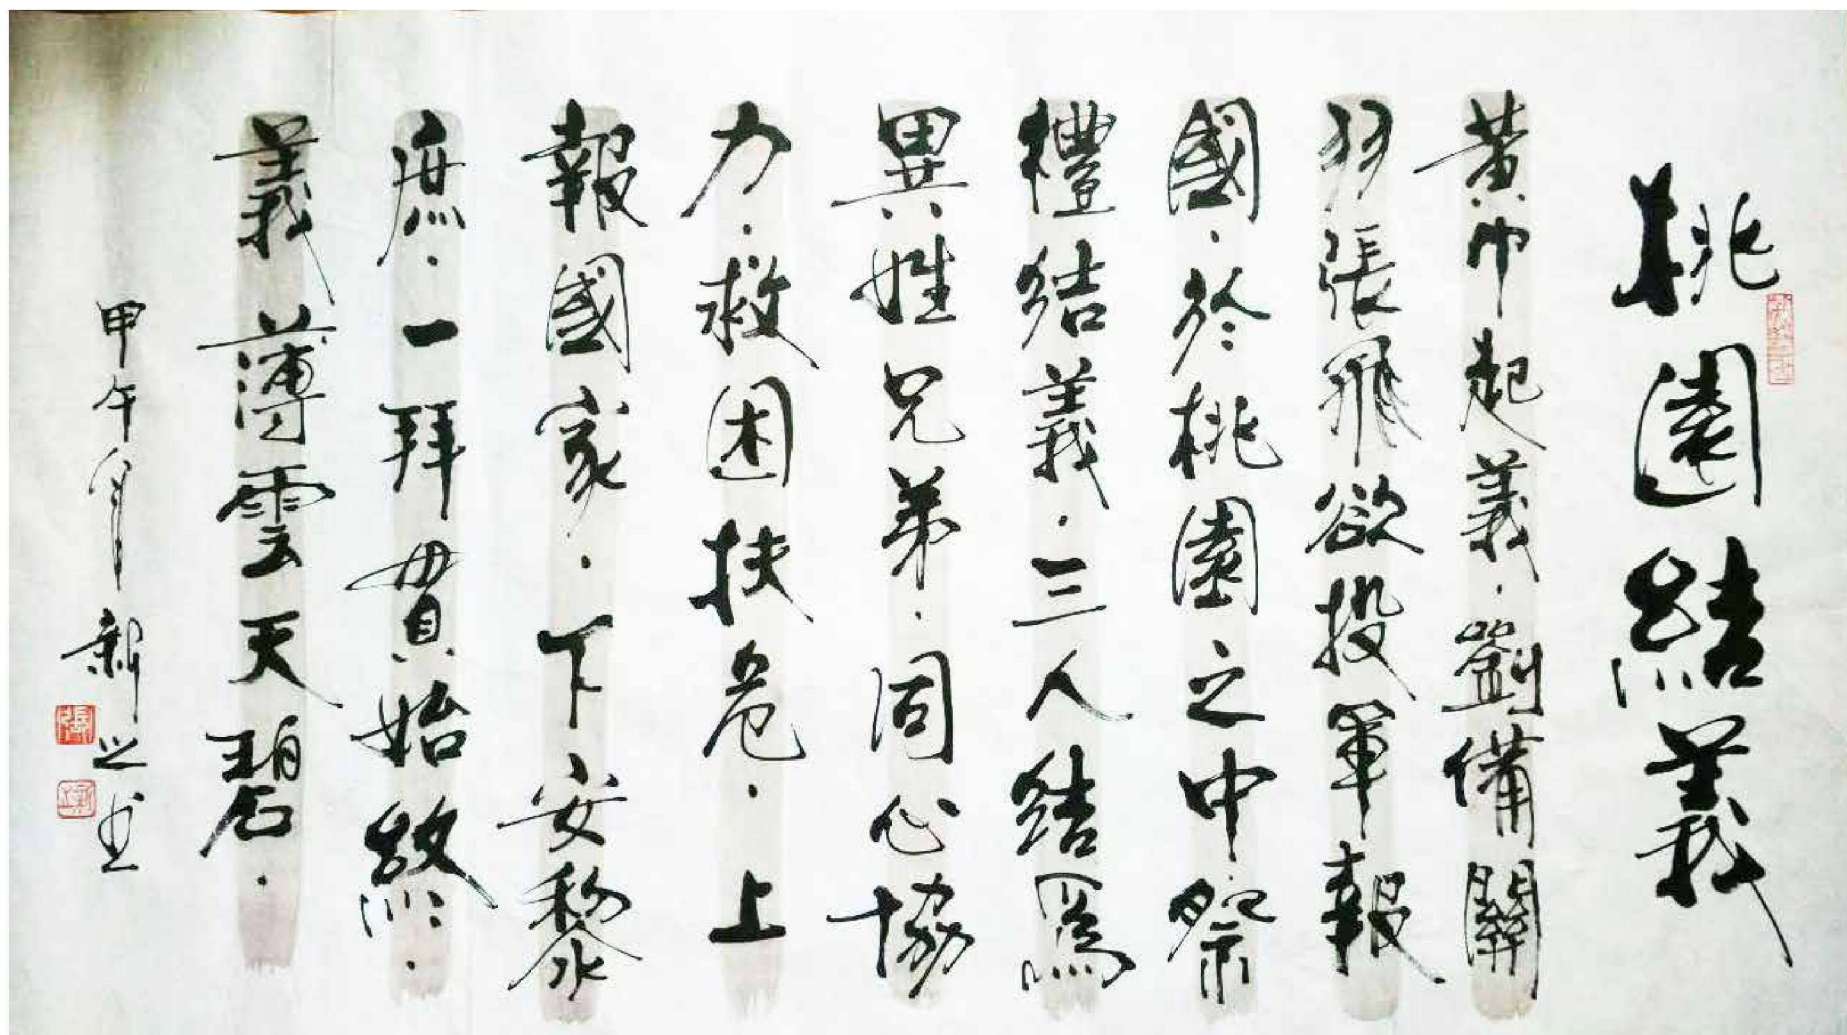 桃園結義
黃巾起義·劉備關
羽張飛欲投軍報
國·於桃園之中祭
禮結義·三人結爲
異姓兄弟·同心協
力·救困扶危·上
報國家·下安黎
庶·一拜貫始終·
義薄雲天碧·
甲午年 新之書